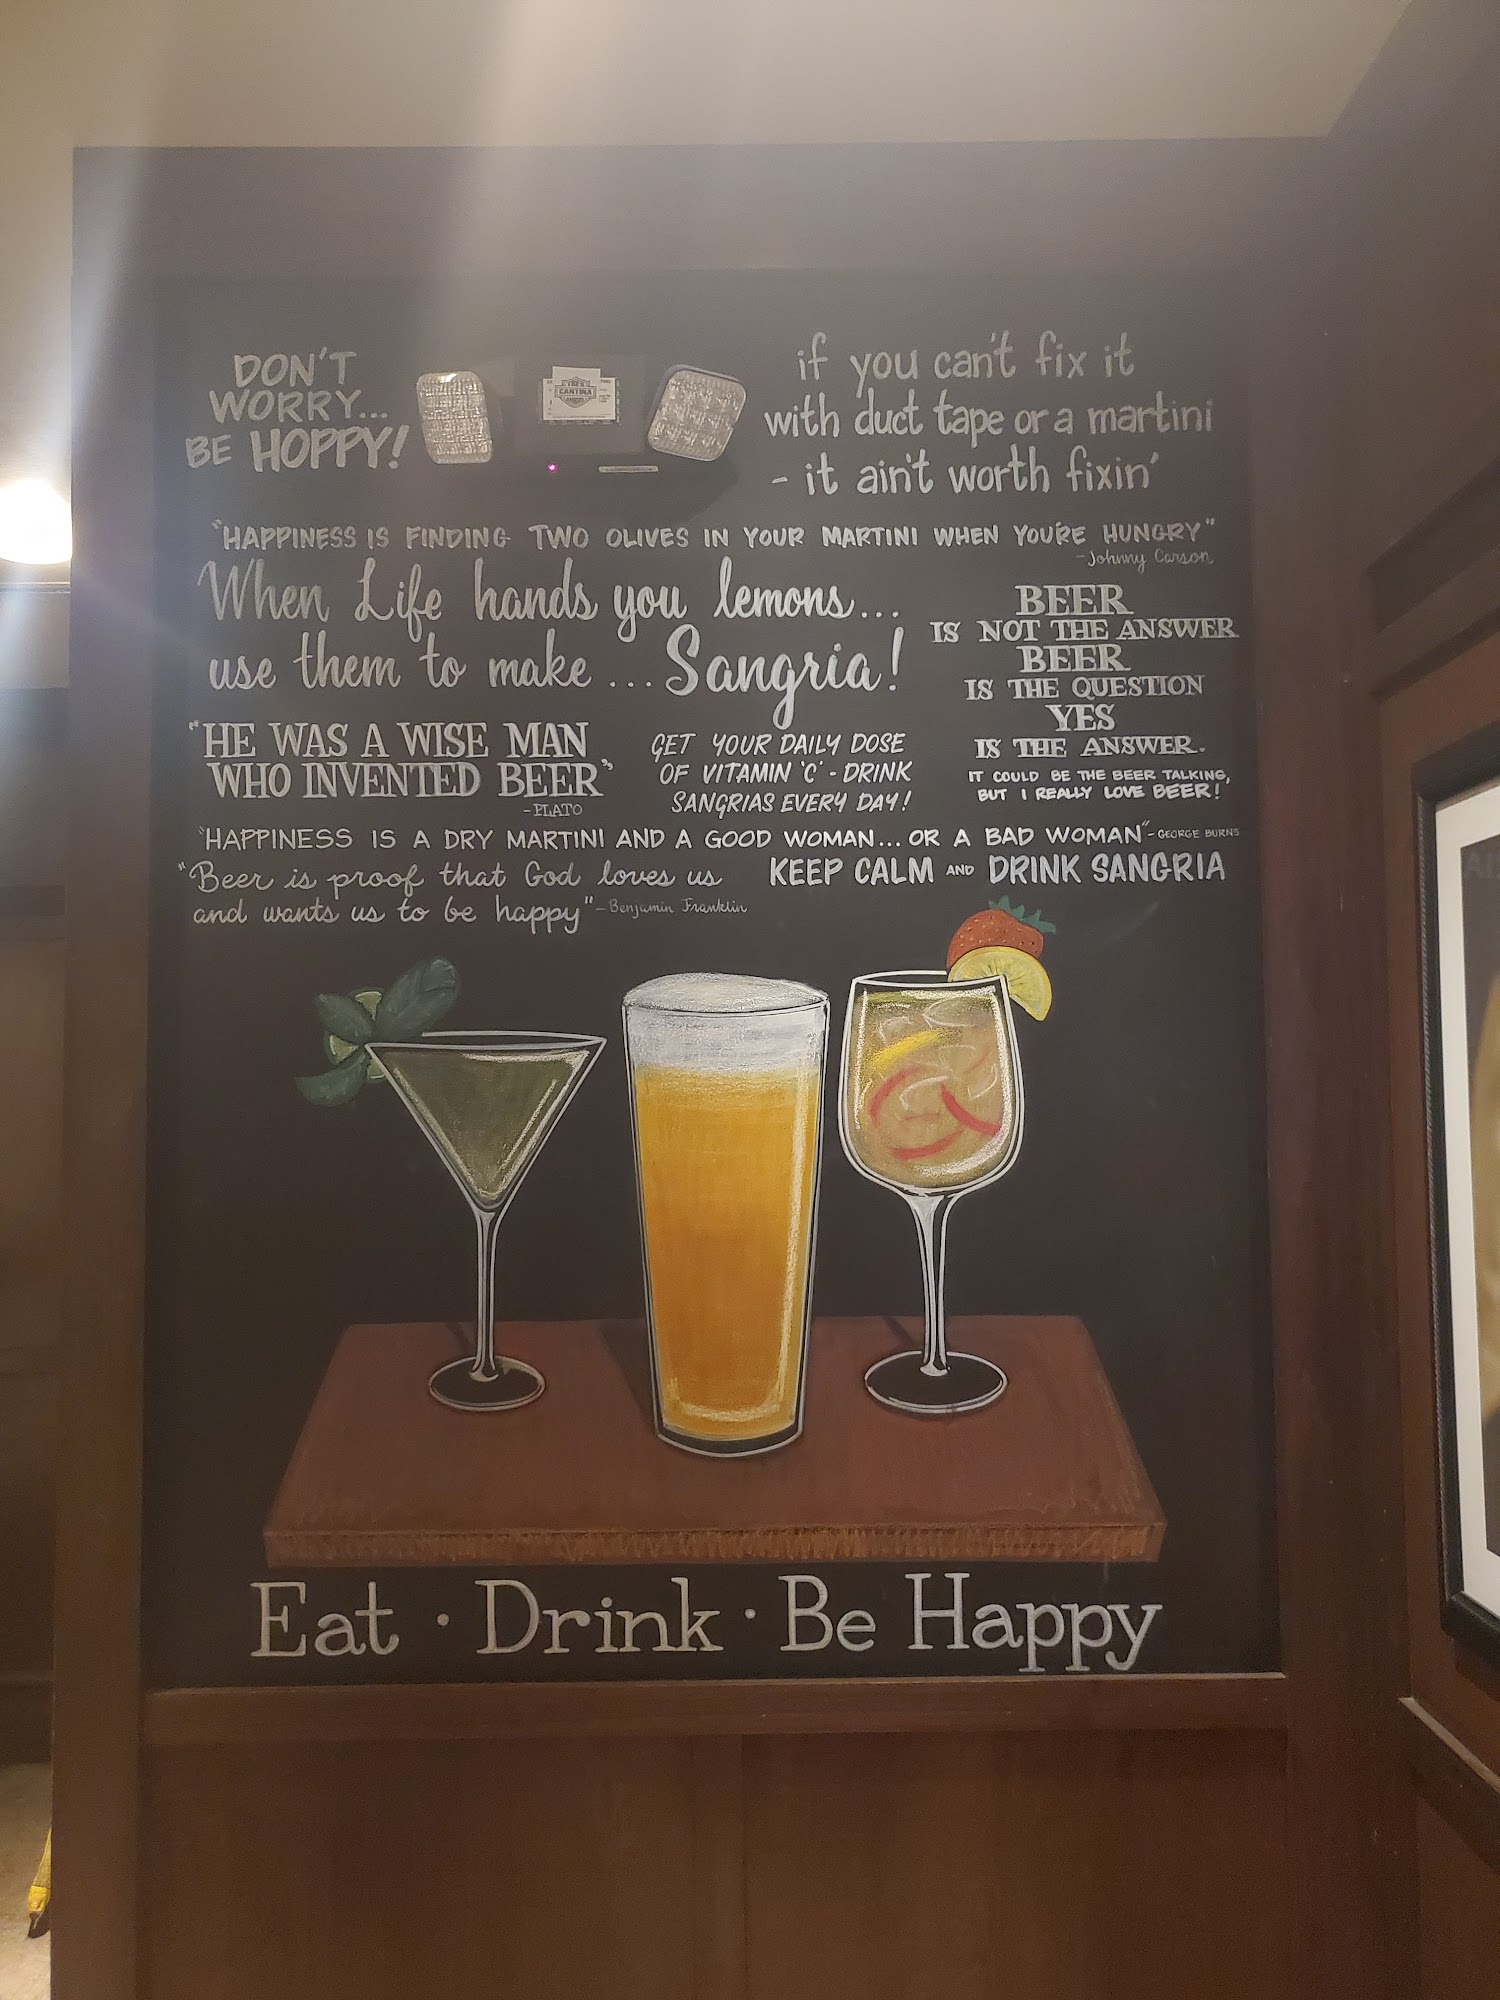 DON'T
WORRY...
BE HOPPY!
CANTINA
if you can't fix it
with duct tape or a martini
- it ain't worth fixin'
"HAPPINESS IS FINDING TWO OLIVES IN YOUR MARTINI WHEN YOU'RE HUNGRY"
-Johnny Carson
When Life hands you lemons...
use them to make ... Sangria!
BEER
IS NOT THE ANSWER
BEER
IS THE QUESTION
YES
IS THE ANSWER.
IT COULD BE THE BEER TALKING,
BUT I REALLY LOVE BEER!
"HE WAS A WISE MAN
WHO INVENTED BEER"
-PLATO
GET YOUR DAILY DOSE
OF VITAMIN 'C' - DRINK
SANGRIAS EVERY DAY!
"HAPPINESS IS A DRY MARTINI AND A GOOD WOMAN... OR A BAD WOMAN" - GEORGE BURNS
"Beer is proof that God loves us
and wants us to be happy" - Benjamin Franklin
KEEP CALM AND DRINK SANGRIA
Eat · Drink · Be Happy